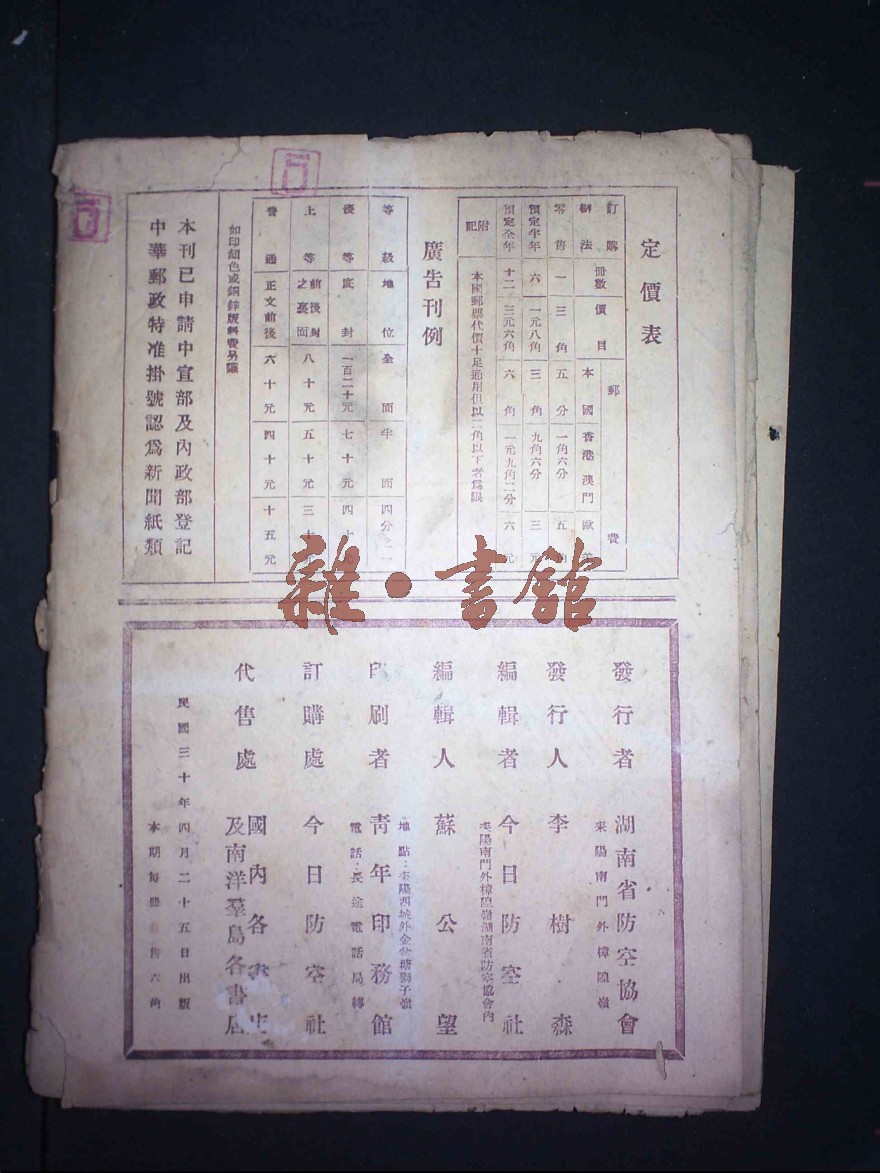 定價表
訂購辦法 冊數 價目 郵費
本國 香港澳門 歐美
零售 一 三角 五分 一角六分 五角
預定半年 六 一元八角 三角 九角六分 三元
預定全年 十二 三元六角 六角 一元九角二分 六元
附記 本國郵票代價十足通用但以二角以下者爲限
廣告刊例
等級 地位 全面 半面 四分之一
優等 底封 一百二十元 七十元 四十元
上等 前後封之裏面 八十元 五十元 三十
普通 正文前後 六十元 四十元 十五元
如印顏色或銅鋅版費另議
本刊已申請中宣部及內政部登記
中華郵政特准掛號認爲新聞紙類
發行者 湖南省防空協會
耒陽南門外樟隍嶺
發行人 李樹森
編輯者 今日防空社
耒陽南門外樟隍嶺湖南省防空協會內
編輯人 蘇公望
印刷者 青年印務館
地點：耒陽西城外金盆塘獅子嶺
電話：長途電話局轉
訂購處 今日防空社
代售處 國內各書店
及南洋羣島各書店
民國三十年四月二十五日出版
本期每冊售六角
雜·書館